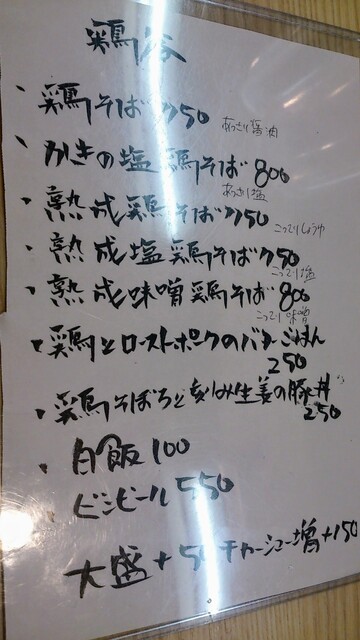 鶏そば750
あっさり醤油
かきの塩鶏そば800
あっさり塩
熟成鶏そば750
こってりしょうゆ
熟成塩鶏そば750
こってり塩
熟成味噌鶏そば800
こってり味噌
鶏とローストポークのバターごはん
250
鶏そぼろと刻み生姜の豚丼
250
白飯100
ビンビール550
大盛+50チャーシュー増+150